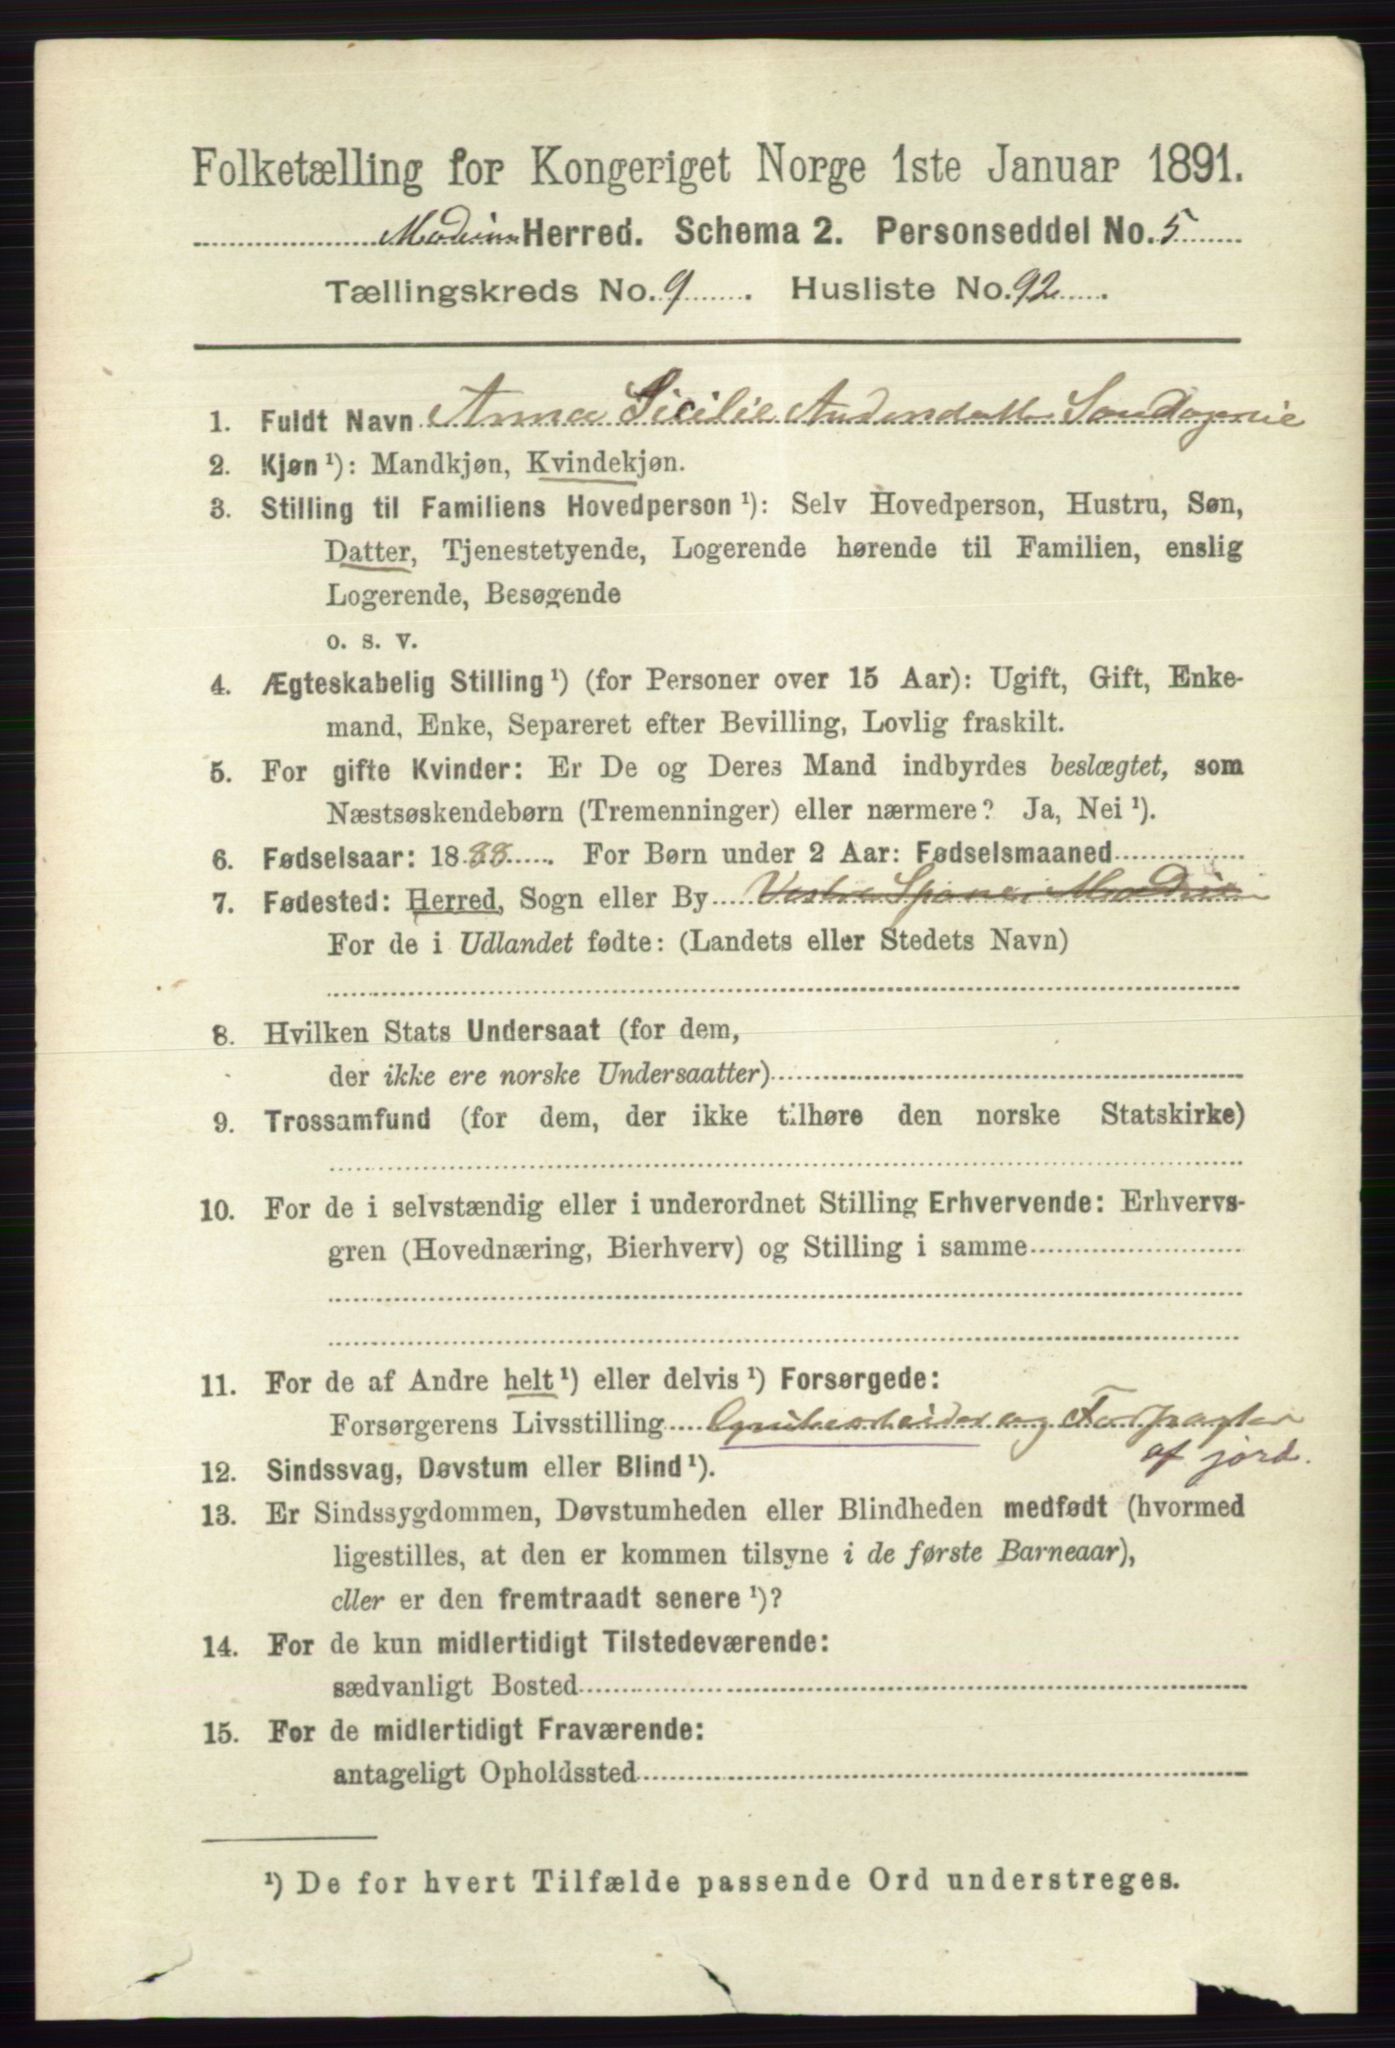 Folketælling for Kongeriget Norge 1ste Januar 1891.
Herred. Schema 2. Personseddel No. 5
Tællingskreds No. 9. Husliste No. 92.
1. Fuldt Navn Anna Sicilie
2. Kjøn ¹): Mandkjøn, Kvindekjøn.
3. Stilling til Familiens Hovedperson ¹): Selv Hovedperson, Hustru, Søn,
Datter, Tjenestetyende, Logerende hørende til Familien, enslig
Logerende, Besøgende
o. s. v.
4. Ægteskabelig Stilling ¹) (for Personer over 15 Aar): Ugift, Gift, Enke-
mand, Enke, Separeret efter Bevilling, Lovlig fraskilt.
5. For gifte Kvinder: Er De og Deres Mand indbyrdes beslægtet, som
Næstsøskendebørn (Tremenninger) eller nærmere? Ja, Nei ¹).
6. Fødselsaar: 1888. For Børn under 2 Aar: Fødselsmaaned
7. Fødested: Herred, Sogn eller By
For de i Udlandet fødte: (Landets eller Stedets Navn)
8. Hvilken Stats Undersaat (for dem,
der ikke ere norske Undersaatter)
9. Trossamfund (for dem, der ikke tilhøre den norske Statskirke)
10. For de i selvstændig eller i underordnet Stilling Erhvervende: Erhvervs-
gren (Hovednæring, Bierhverv) og Stilling i samme
11. For de af Andre helt ¹) eller delvis ¹) Forsørgede:
Forsørgerens Livsstilling Grubearbeider og Forpagter
af jord.
12. Sindssvag, Døvstum eller Blind ¹).
13. Er Sindssygdommen, Døvstumheden eller Blindheden medfødt (hvormed
ligestilles, at den er kommen tilsyne i de første Barneaar),
eller er den fremtraadt senere ¹)?
14. For de kun midlertidigt Tilstedeværende:
sædvanligt Bosted
15. For de midlertidigt Fraværende:
antageligt Opholdssted
¹) De for hvert Tilfælde passende Ord understreges.